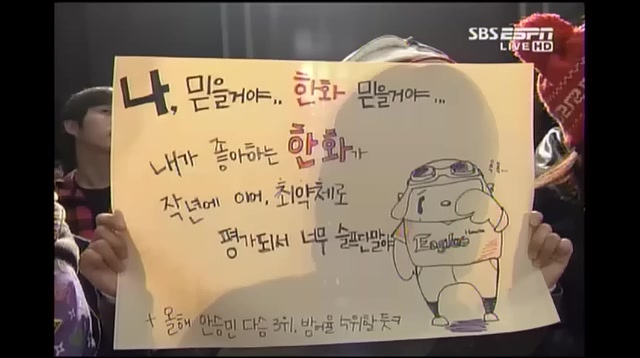 SBS ESPN
LIVE HD
나, 믿을거야.. 한화 믿을거야...
내가 좋아하는 한화가
작년에 이어, 최약체로
평가되서 너무 슬프단말야
Eagles
+ 올해 안승민 다승 3위, 방어율 4위할듯ㅋ